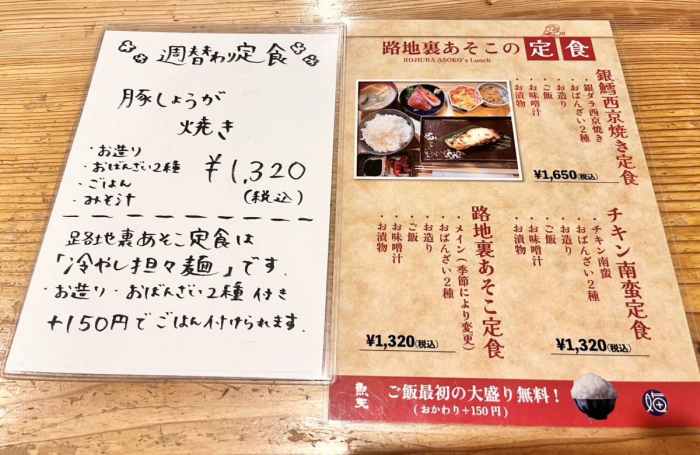 週替わり定食
豚しょうが
焼き
・お造り
・おばんざい2種
・ごはん
・みそ汁
¥1,320
(税込)
路地裏あそこ定食は
「冷やし担々麺」です.
・お造り・おばんざい2種 付き
+150円でごはん付けられます.
路地裏あそこの定食
ROJIURA ASOKO's Lunch
銀鱈西京焼き定食
・銀ダラ西京焼き
・おばんざい2種
・お造り
・ご飯
・お味噌汁
・お漬物
¥1,650(税込)
路地裏あそこ定食
・メイン(季節により変更)
・おばんざい2種
・お造り
・ご飯
・お味噌汁
・お漬物
¥1,320(税込)
チキン南蛮定食
・チキン南蛮
・おばんざい2種
・お造り
・ご飯
・お味噌汁
・お漬物
¥1,320(税込)
ご飯最初の大盛り無料!
(おかわり+150円)